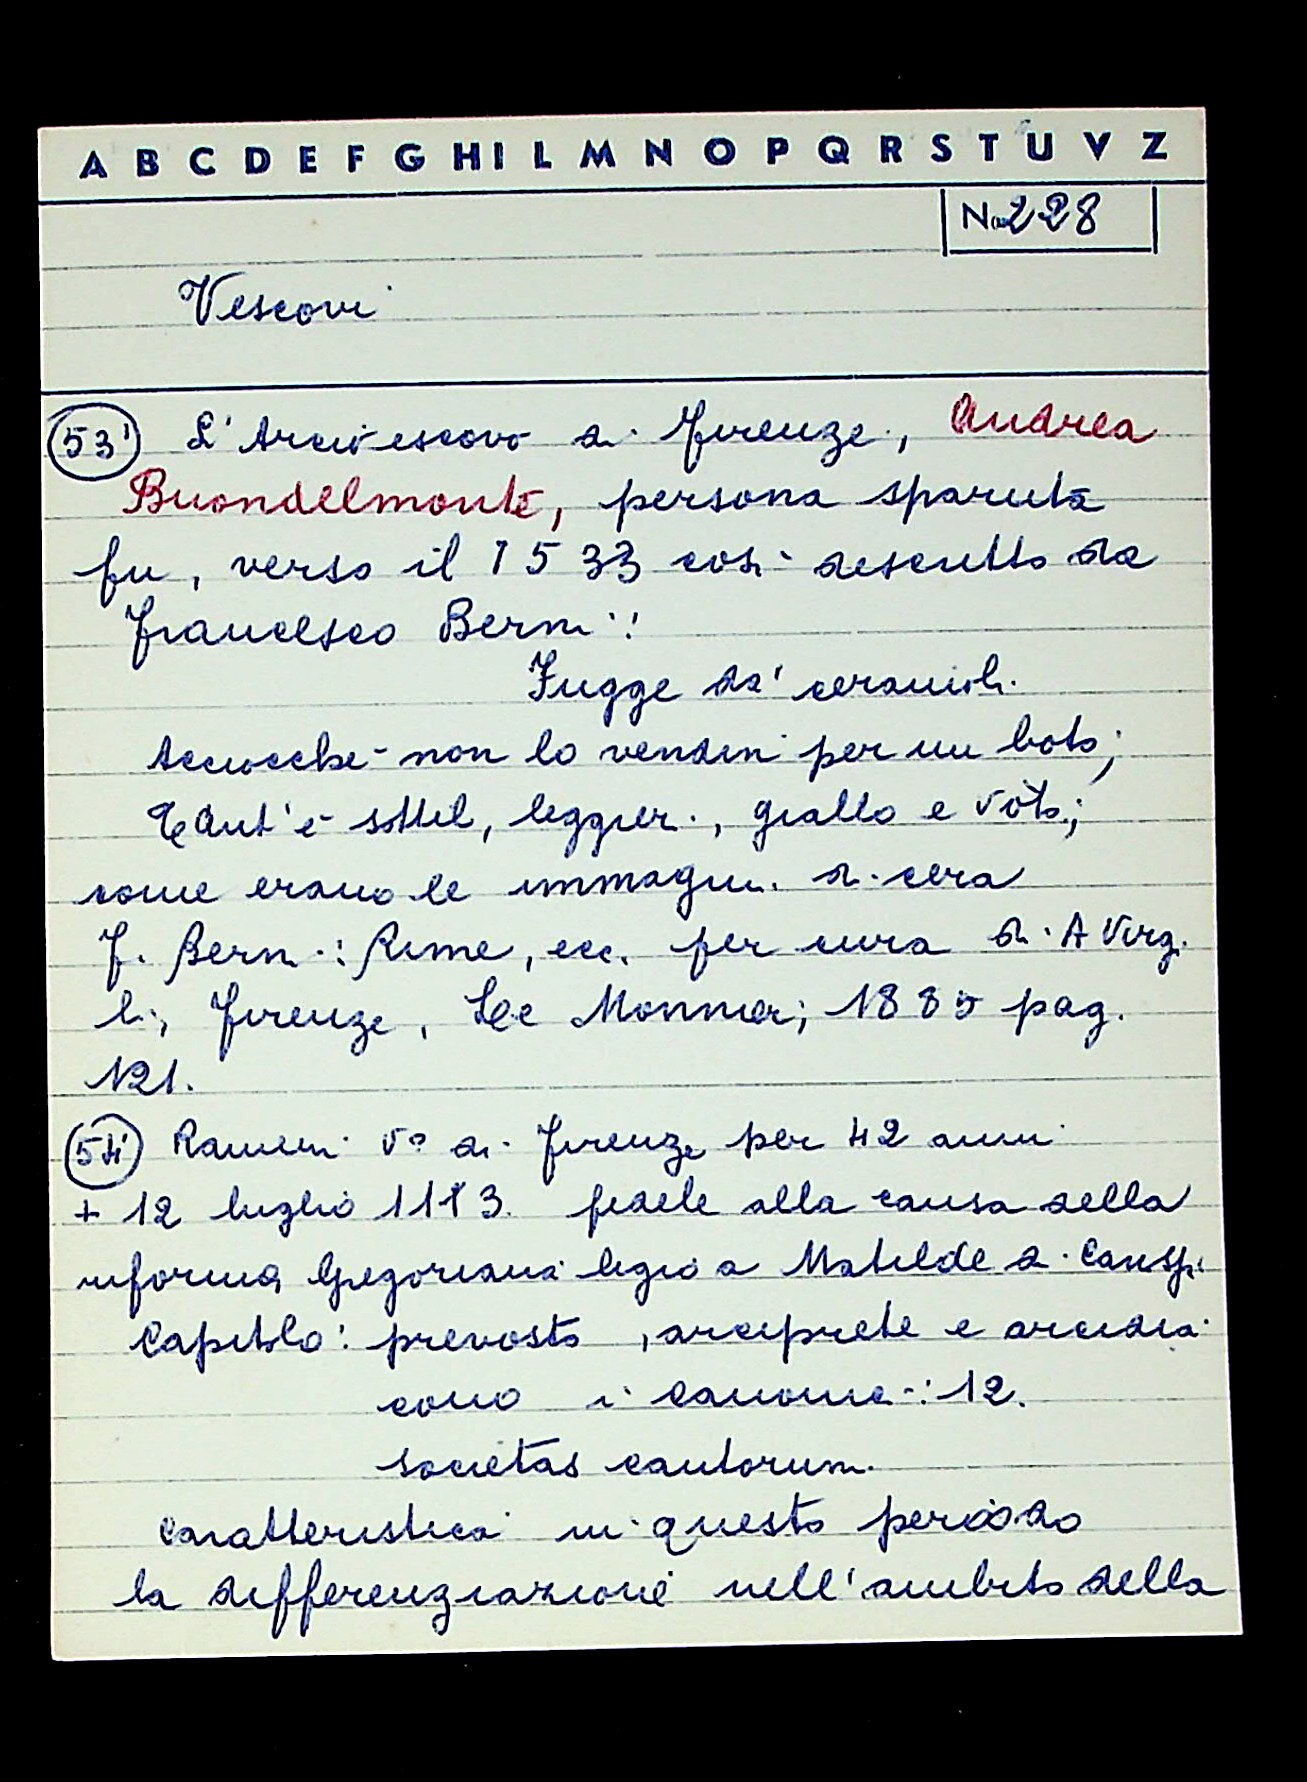 A B C D E F G H I L M N O P Q R S T U V Z
No 228
Vescovi
53) L'Arcivescovo di Firenze, Andrea
Buondelmonte, persona sparuta
fu, verso il 1533 così descritto da
Francesco Berni:
Fugge da' ceraiuoli
Acciocché non lo vendin per un boto;
Tant'è sottil, leggier, giallo e vòto;
come erano le immagini di cera
F. Berni: Rime, ecc. per cura di A Virg.
li, Firenze, Le Monnier; 1885 pag.
121.
54) Ranieri Vº di Firenze per 42 anni
+ 12 luglio 1113. fedele alla causa della
riforma Gregoriana ligio a Matilde di
Capitolo: prevosto, arciprete e arcidia
cono i canonici: 12.
societas cantorum.
Caratteristica in questo periodo
la differenziazione nell'ambito della